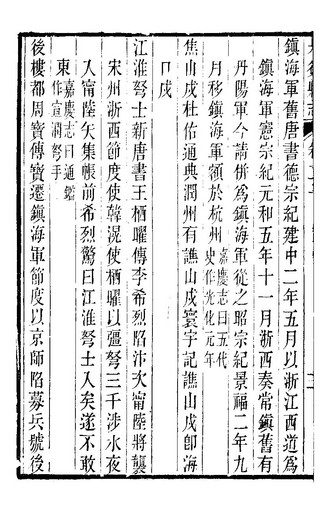 鎮海軍舊唐書德宗紀建中二年五月以浙江西道爲
鎮海軍憲宗紀元和五年十一月浙西奏常鎮舊有
丹陽軍今請併爲鎮海軍從之昭宗紀景福二年九
月移鎮海軍額於杭州嘉慶志曰五代
史作光化元年
焦山戍杜佑通典潤州有譙山戍寰宇記譙山戍卽海
口戍
江淮弩士新唐書王栖曜傳李希烈陷汴次甯陵將襲
宋州浙西節度使韓滉使栖曜以彊弩三千涉水夜
入甯陵矢集帳前希烈驚曰江淮弩士入矣遂不敢
東嘉慶志曰通鑑
作宣潤弩手
後樓都周寶傳寶遷鎮海軍節度以京師陷募兵號後